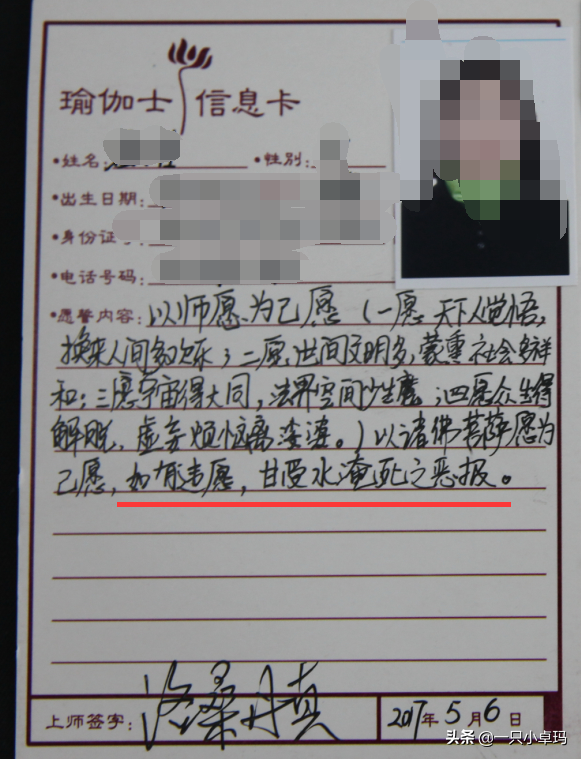 瑜伽士 信息卡
•姓名: •性别:
•出生日期:
•身份证
•电话号码:
•愿誓内容: 以师愿为己愿（一愿天下人觉悟,
换来人间多欢乐；二愿世间文明多,蒙熏社会多祥
和；三愿宇宙得大同,法界空间少生魔；四愿众生得
解脱,虚妄烦恼离婆婆。）以诸佛菩萨愿为
己愿,如有违愿,甘受水淹死之恶报。
上师签字: 洛桑丹真 2017年5月6日
头条 @一只小卓玛